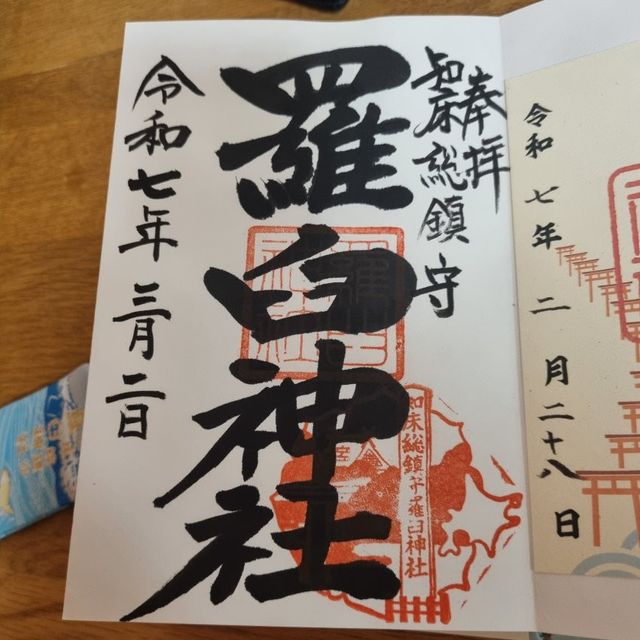 奉拝
知床総鎮守
羅臼神社
令和七年三月二日
知床総鎮守羅臼神社
令和七年二月二十八日